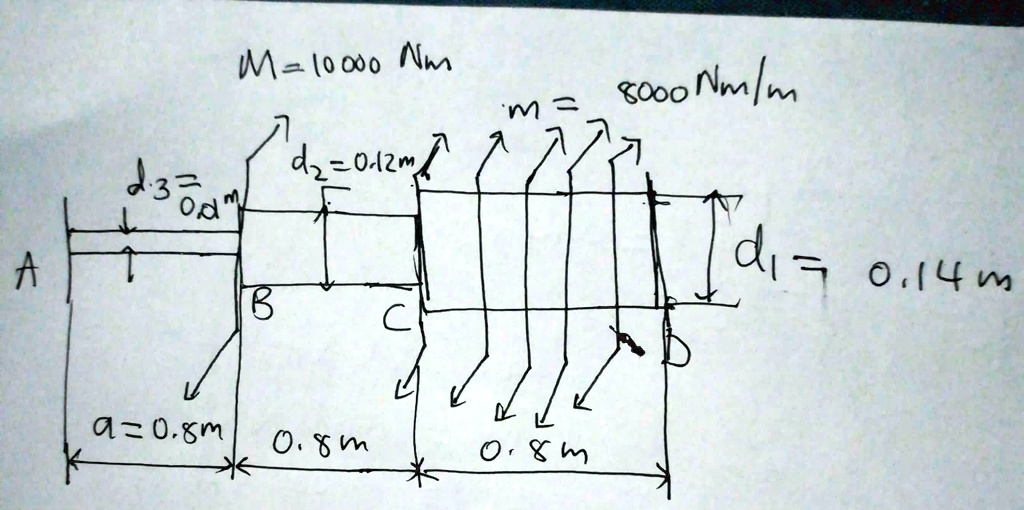 M = 10000 Nm
m = 8000 Nm/m
d3 =
d2 = 0.12m
A
B
C
D
d1 = 0.14 m
a = 0.8m
0.8m
0.8m